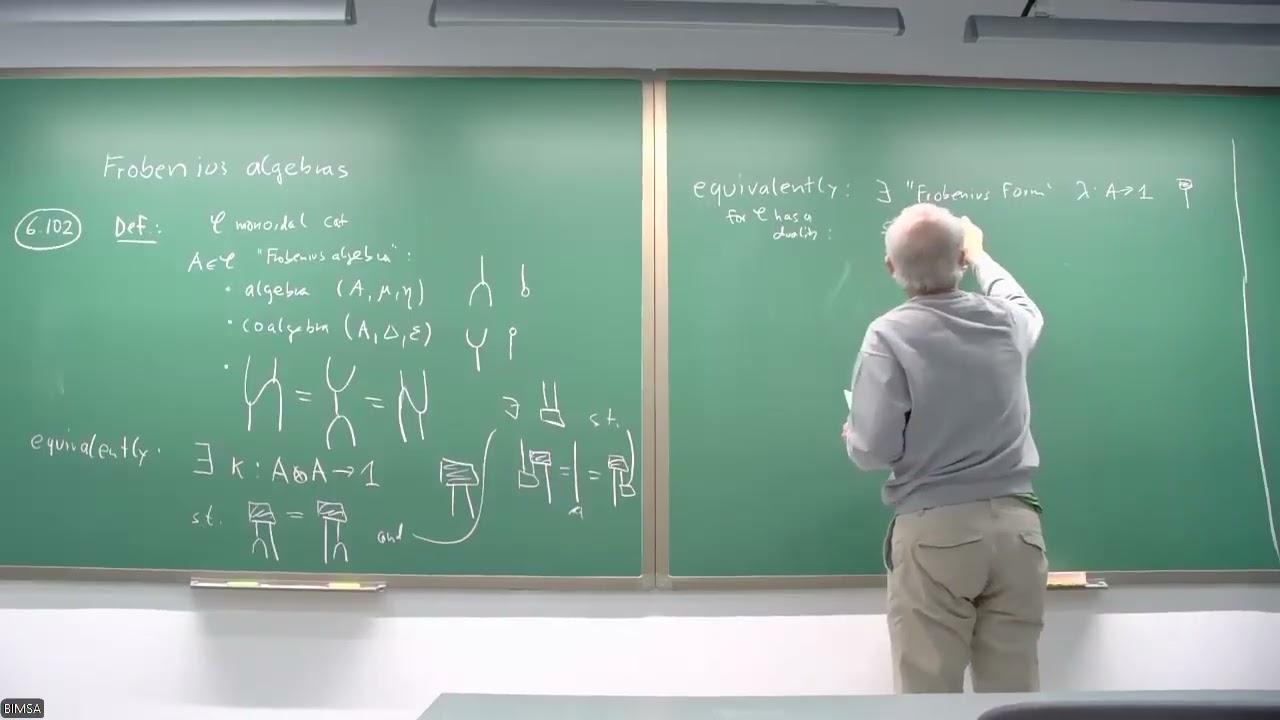 Frobenius algebras
6.102 Def.: 𝒞 monoidal cat
A ∈ 𝒞 "Frobenius algebra":
• algebra (A, μ, η)
• coalgebra (A, Δ, ε)
• = =
∃ s.t.
= =
equivalently: ∃ κ : A⊗A → 1
s.t. = and
equivalently: ∃ "Frobenius form" λ: A→1
for 𝒞 has a
duality:
BIMSA